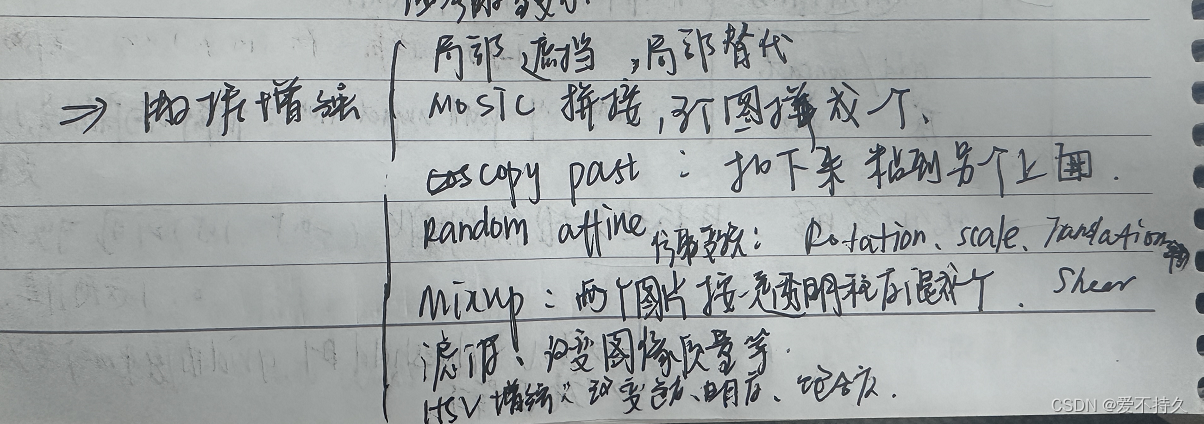 局部遮挡,局部替代
⇒ 图像增强
MOSIC 拼接,多个图拼成一个、
copy past : 扣下来 粘到另个上面.
Random affine 仿射变换: Rotation、scale、Translation
Shear
Mixup : 两个图片按一定透明程度混成个.
滤波、改变图像质量等.
HSV 增强: 改变色度、明度、饱合度.
CSDN @爱不持久